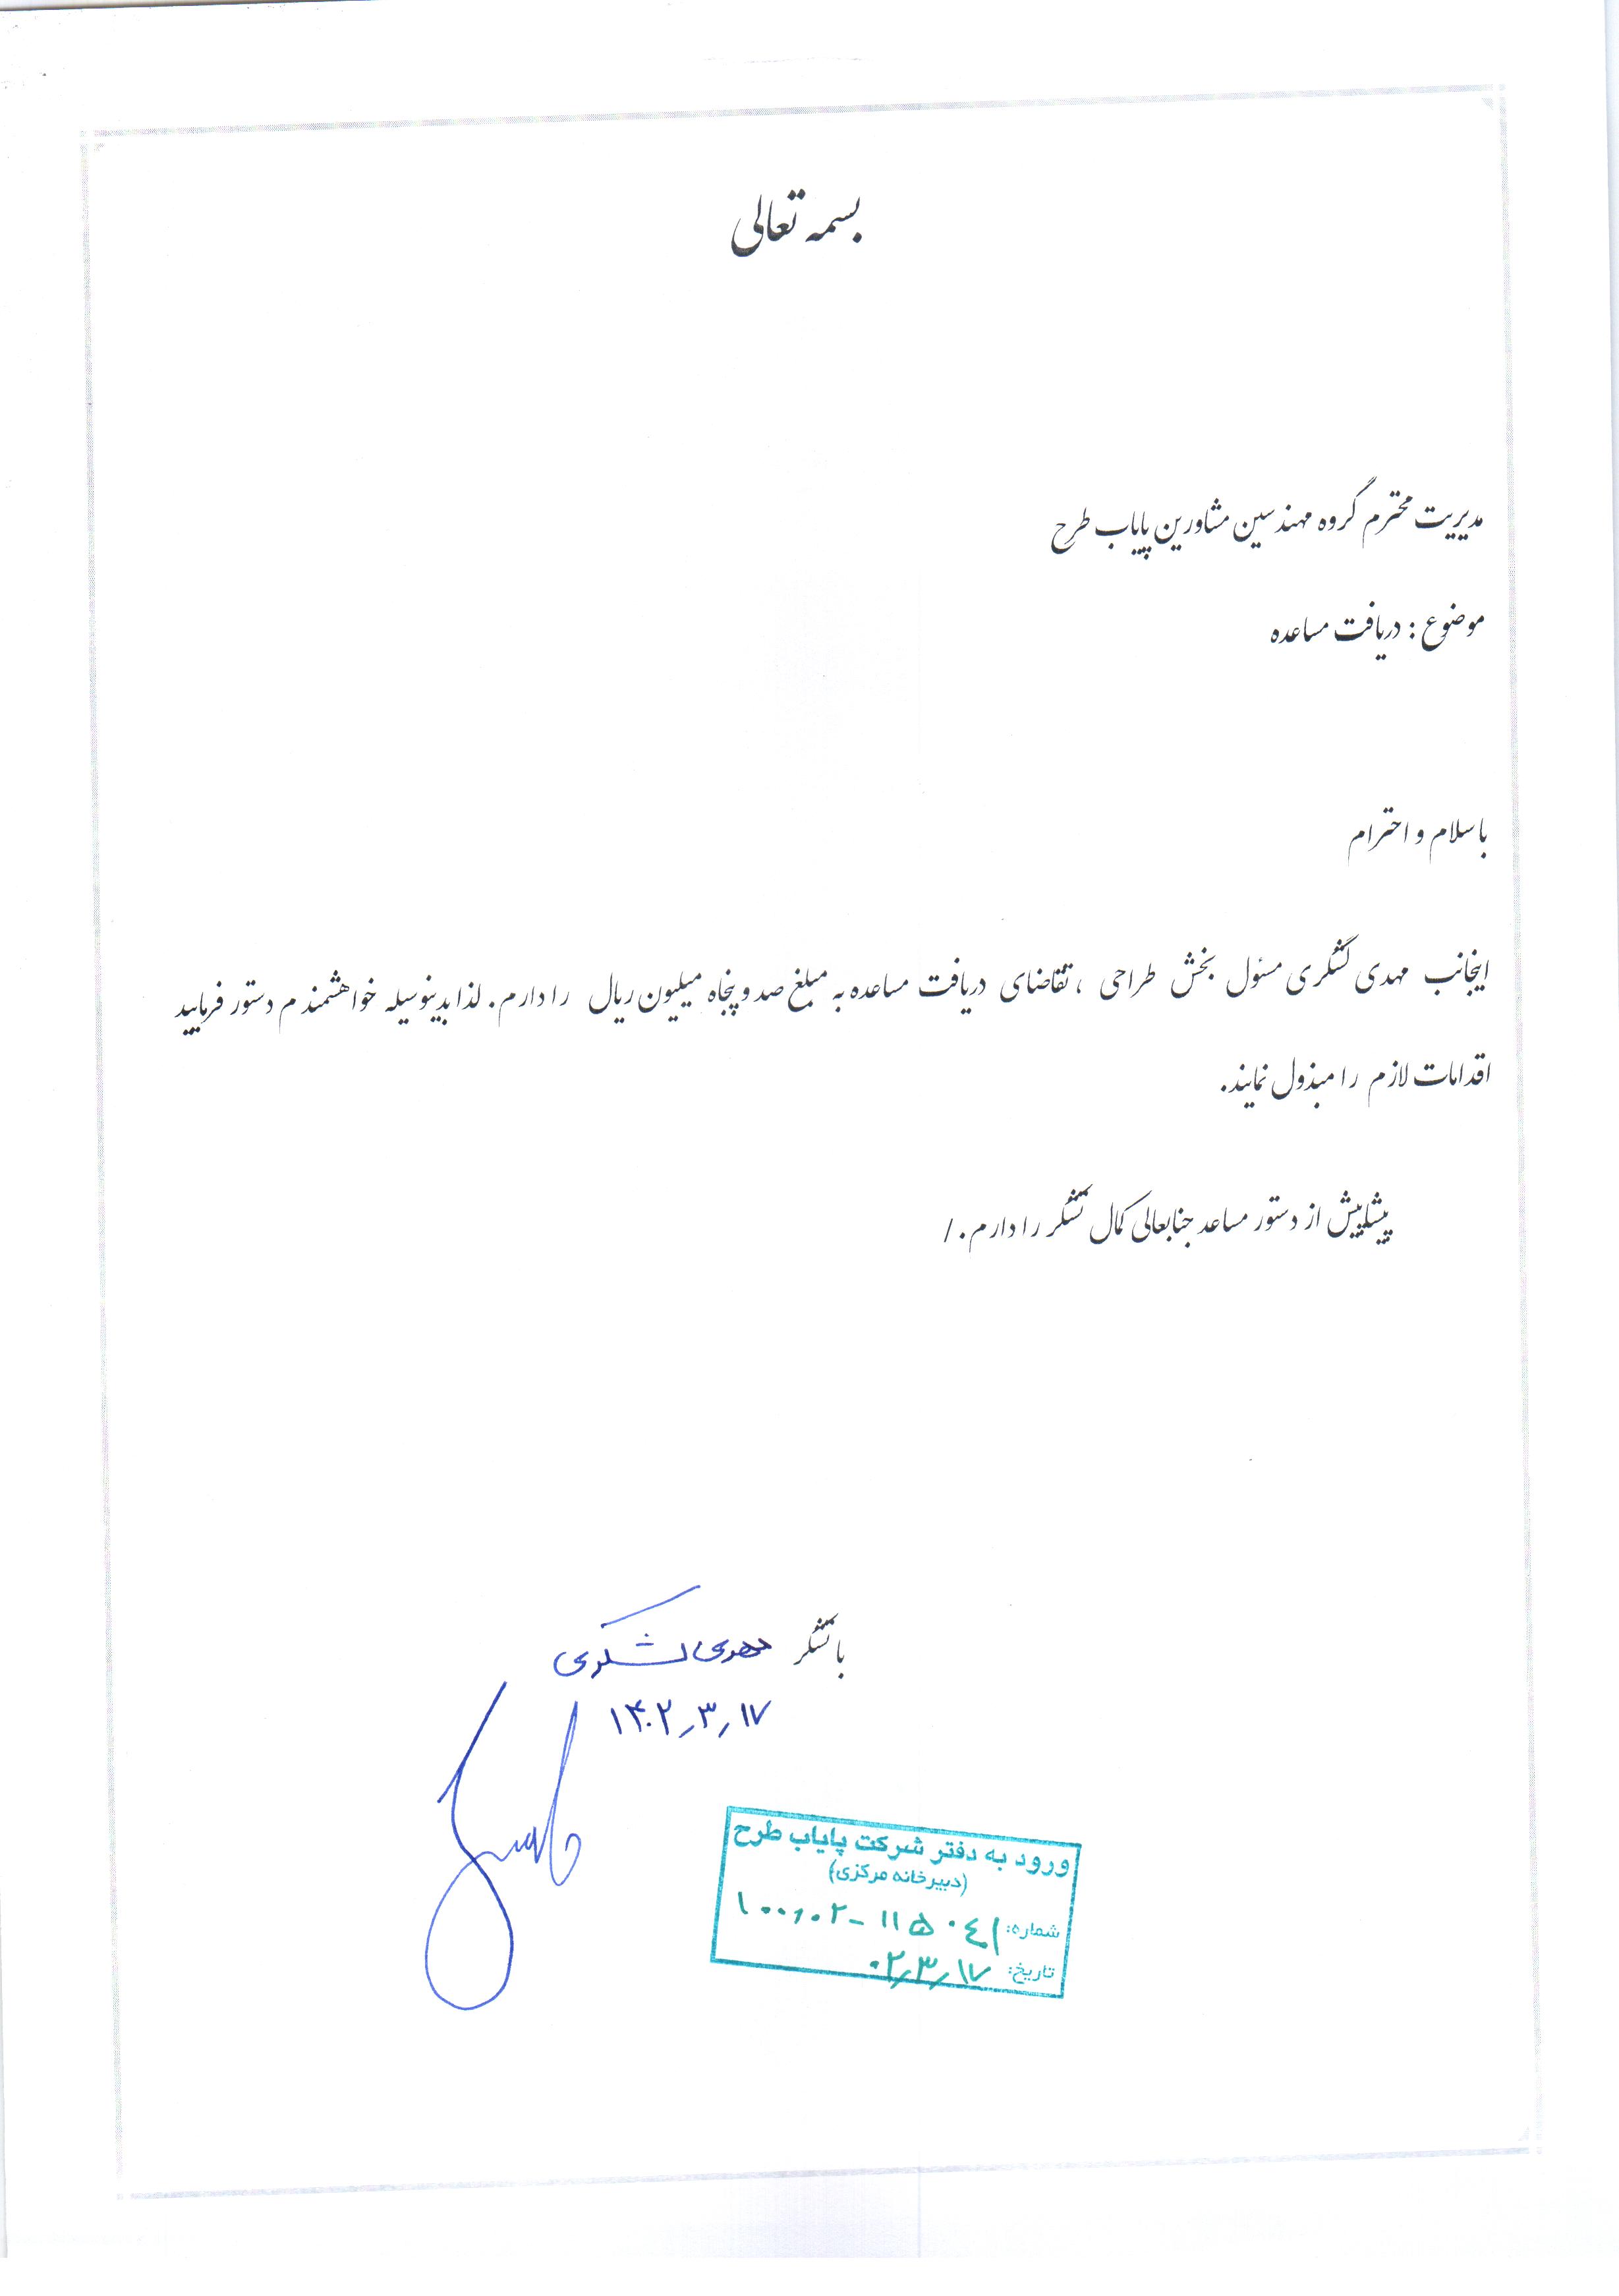 بسمه تعالی
مدیریت محترم گروه مهندسین مشاورین پایاب طرح
موضوع : دریافت مساعده
با سلام و احترام
اینجانب مهدی لشگری مسئول بخش طراحی ، تقاضای دریافت مساعده به مبلغ صد و پنجاه میلیون ریال را دارم. لذا بدینوسیله خواهشمندم دستور فرمایید
اقدامات لازم را مبذول نمایند.
پیشاپیش از دستور مساعد جنابعالی کمال تشکر را دارم. /
با تشکر مهدی لشکری
۱۴۰۲,۳,۱۷
ورود به دفتر شرکت پایاب طرح
(دبیرخانه مرکزی)
شماره: ۱۰۰,۰۲-۱۱۵۰۴۱
تاریخ: ۰۲,۳,۱۷